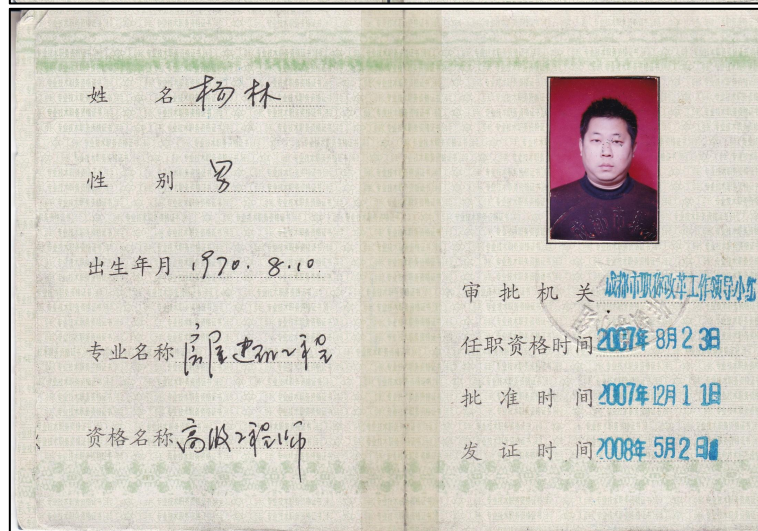 姓 名 杨林
性 别 男
出生年月 1970.8.10.
专业名称 房屋建筑工程
资格名称 高级工程师
审批机关 成都市职称改革工作领导小组
任职资格时间 2007年8月23日
批准时间 2007年12月11日
发证时间 2008年5月2日